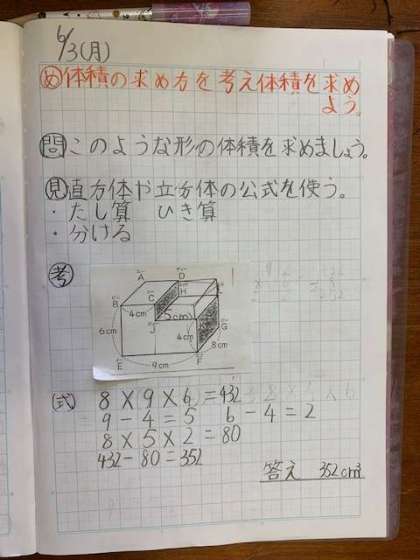 6/3(月)
め 体積の求め方を考え体積を求め
よう。
問 このような形の体積を求めましょう。
見 直方体や立方体の公式を使う。
・たし算 ひき算
・分ける
考
A D
B C H
4cm 5cm
6cm J 4cm G
8cm
E F
9cm
式 8×9×6=432
9-4=5 6-4=2
8×5×2=80
432-80=352
答え 352cm³